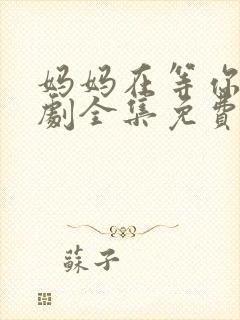 妈妈在等你
劇全集免費
蘇子